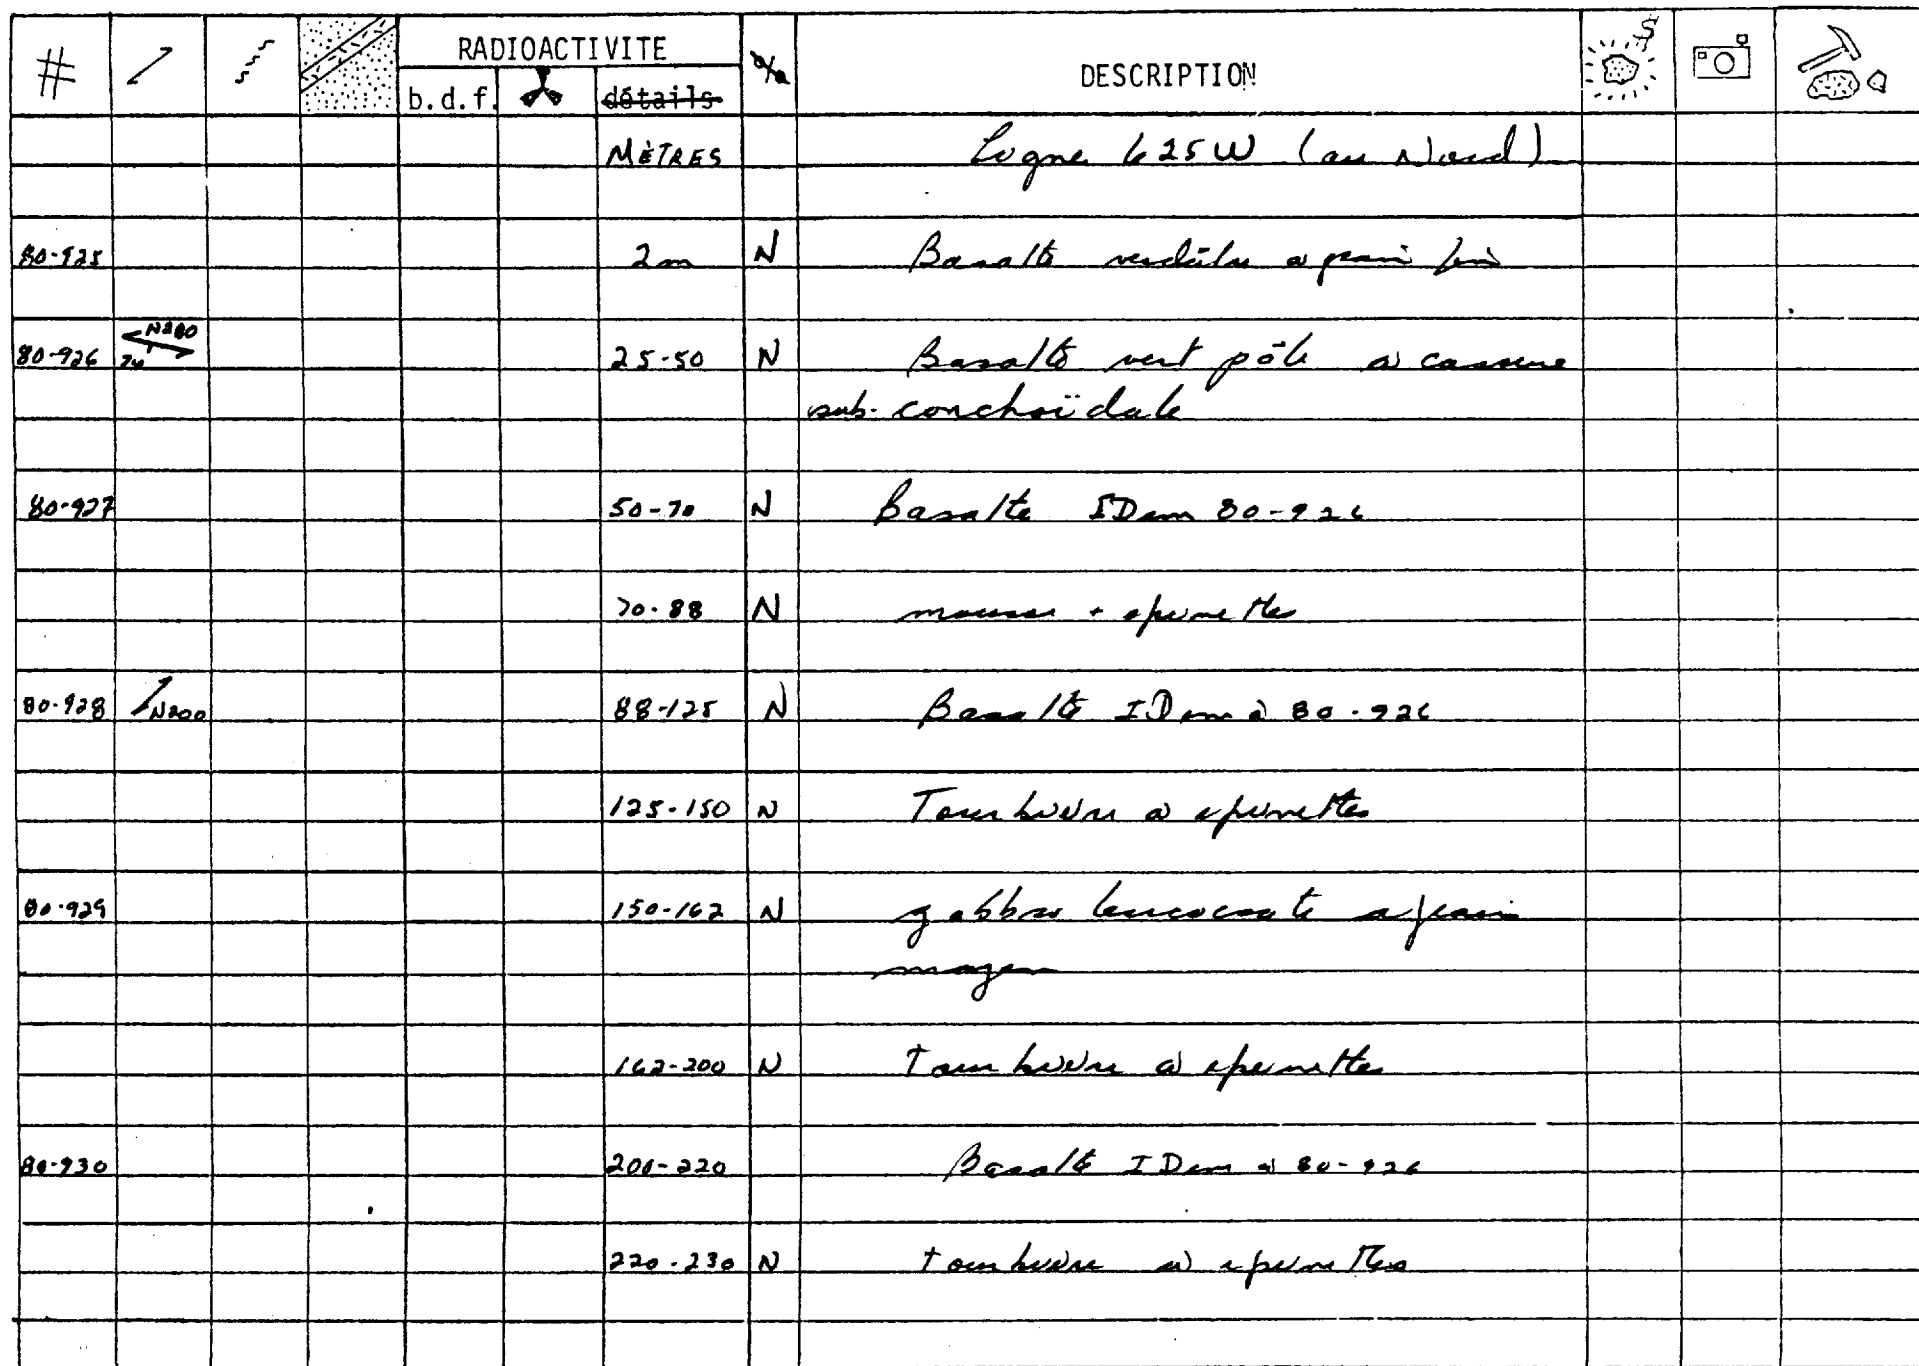 # RADIOACTIVITE % DESCRIPTION $
b.d.f. détails
MÈTRES Ligne 625W (au Nord)
80-925 2m N Basalte verdâtre a grain fin
80-926 N280 25-50 N Basalte vert pâle à cassure
sub-conchoïdale
80-927 50-70 N Basalte IDem 80-926
70-88 N mousse + epinettes
80-928 N200 88-125 N Basalte IDem à 80-926
125-150 N Tourbière a epinettes
80-929 150-162 N gabbro leucocrate a grain
moyen
162-200 N Tourbière a epinettes
80-930 200-220 Basalte IDem a 80-926
220-230 N tourbière a epinettes